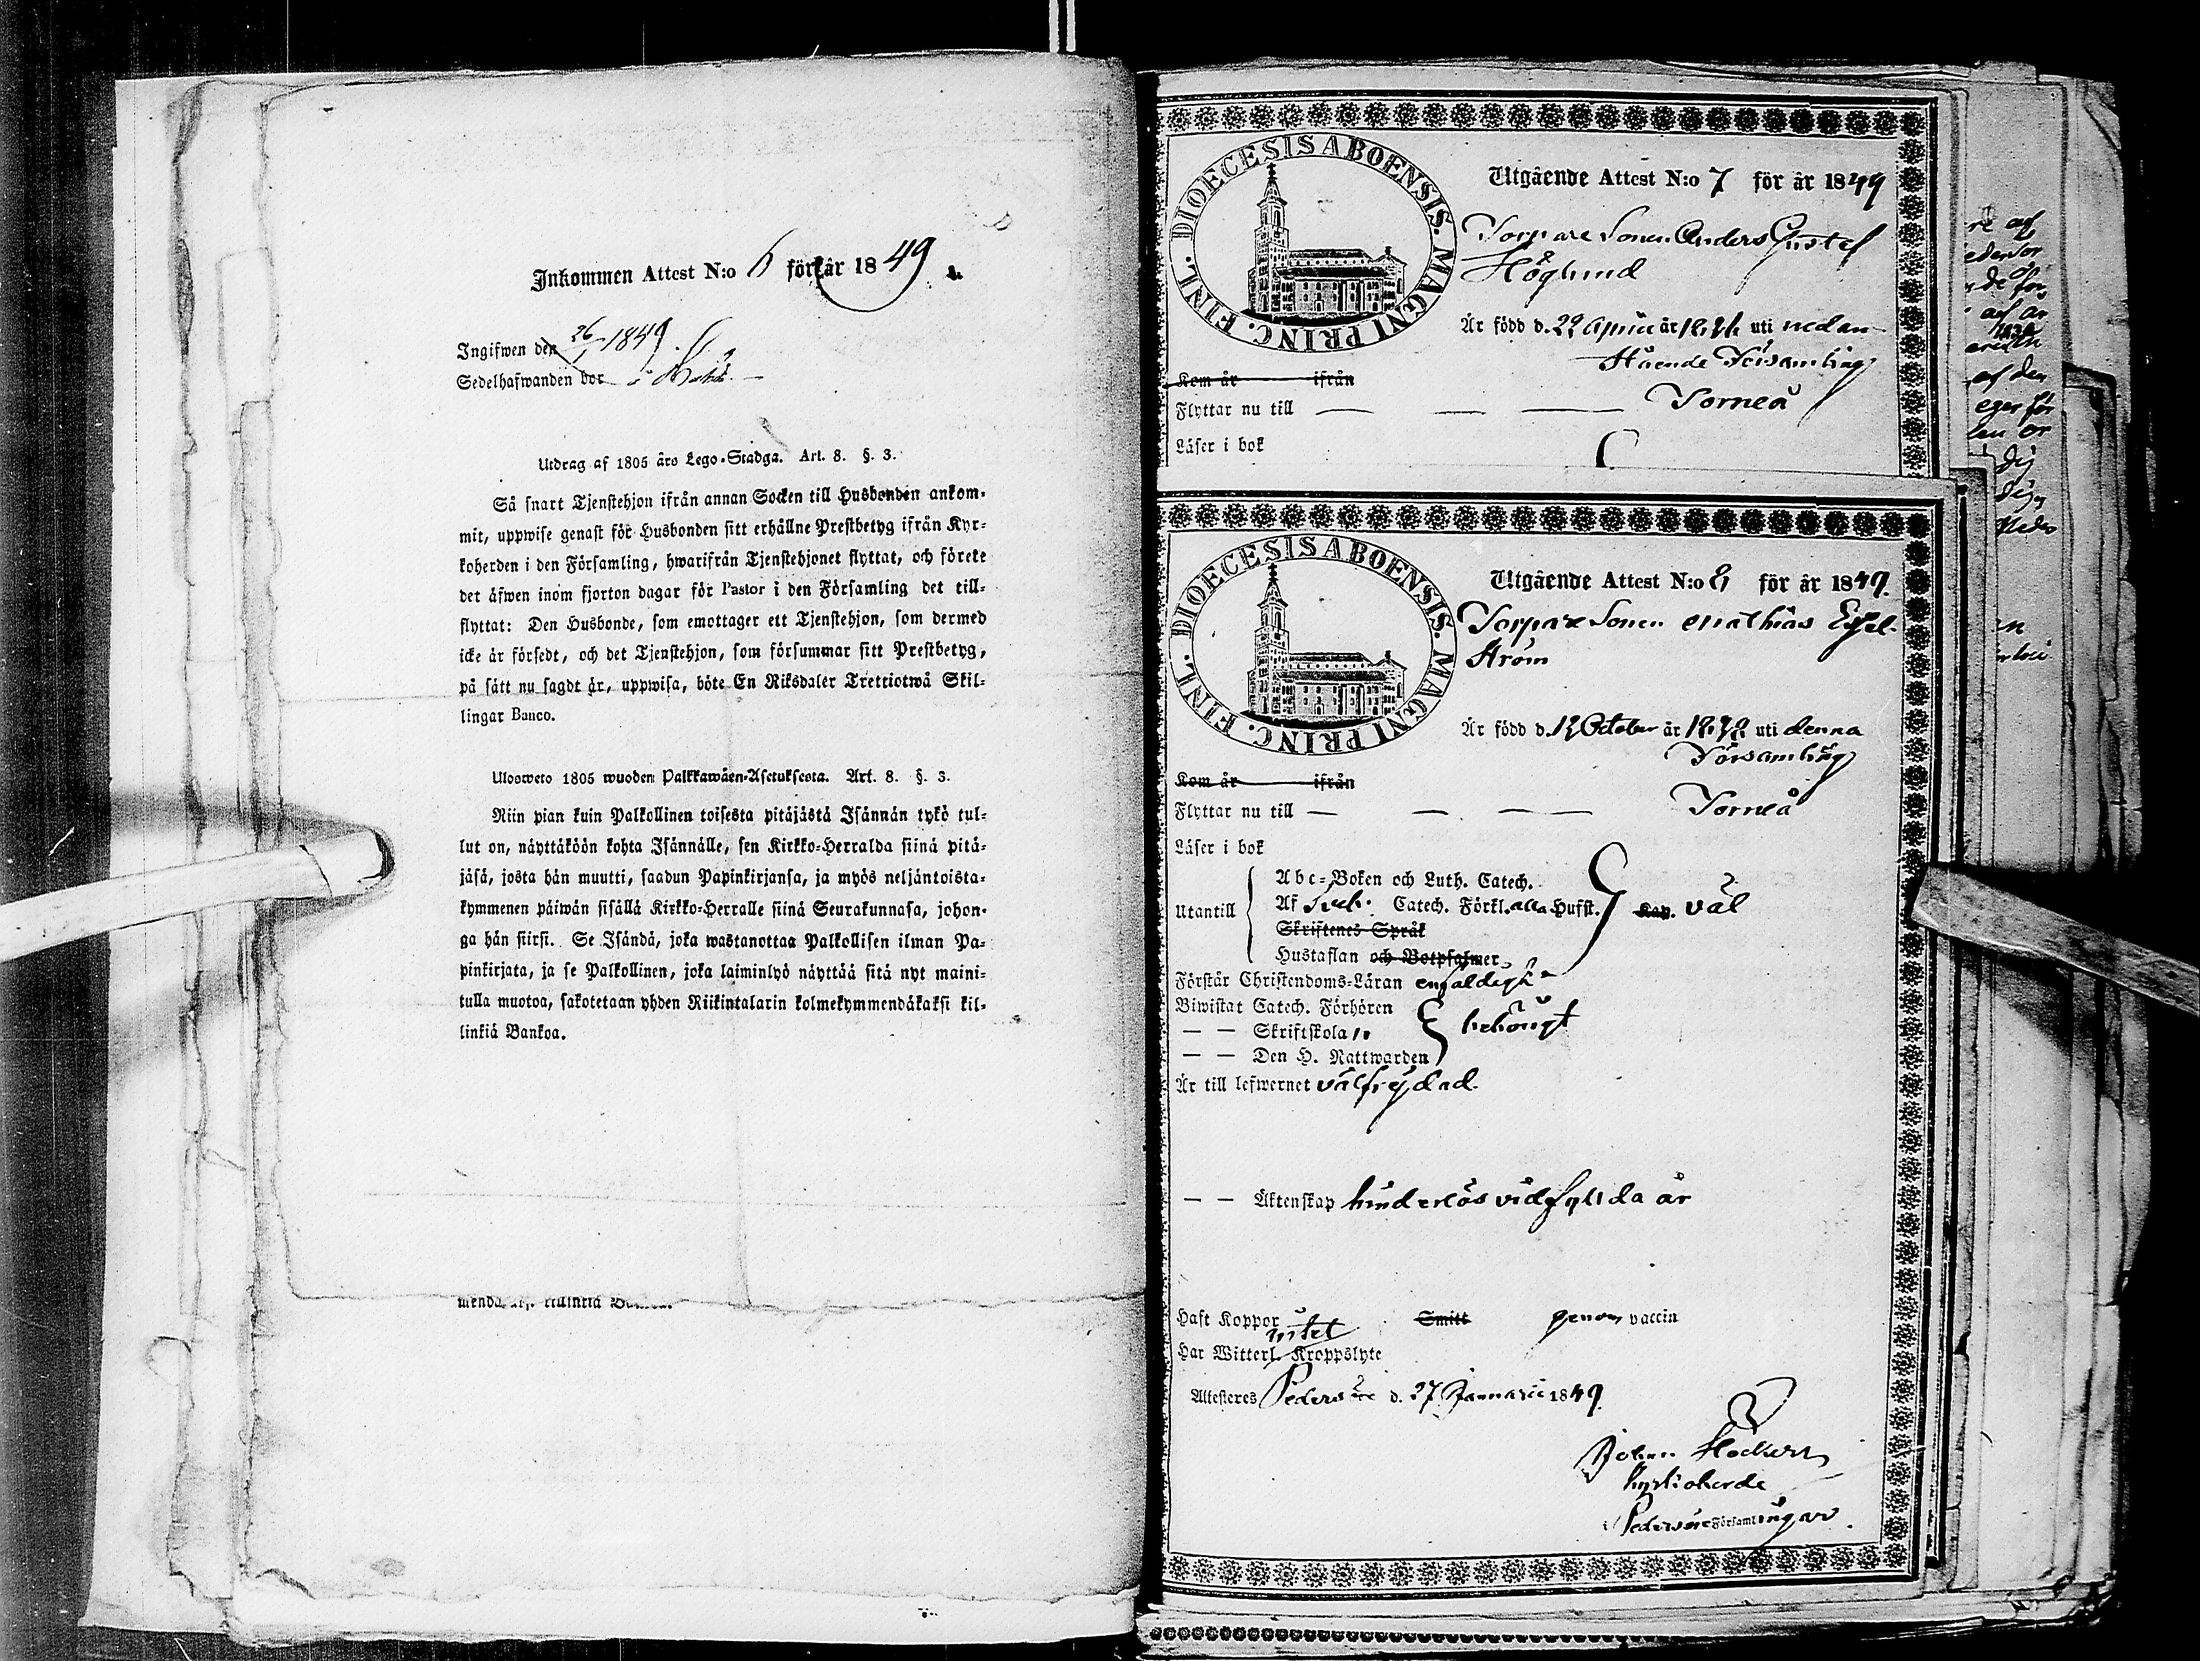 Inkommen Attest N:o 6 för år 1849.
Ingifwen den 26/1 1849.
Sedelhafwanden bor i
Utdrag af 1805 års Lego-Stadga. Art. 8. §. 3.
Så snart Tjenstehjon ifrån annan Socken till Husbonden ankom-
mit, uppwise genast för Husbonden sitt erhållne Prestbetyg ifrån Kyr-
koherden i den Församling, hwarifrån Tjenstehjonet flyttat, och förete
det äfwen inom fjorton dagar för Pastor i den Församling det till-
flyttat: Den Husbonde, som emottager ett Tjenstehjon, som dermed
icke är försedt, och det Tjenstehjon, som försummar sitt Prestbetyg,
på sätt nu sagdt är, uppwisa, böte En Riksdaler Trettiotwå Skil-
lingar Banco.
Ulosweto 1805 wuoden Palkkawäen-Asetuksesta. Art. 8. §. 3.
Niin pian kuin Palkollinen toisesta pitäjästä Isännän tykö tul-
lut on, näyttäköön kohta Isännälle, sen Kirkko-Herralda siinä pitä-
jäsä, josta hän muutti, saadun Papinkirjansa, ja myös neljäntoista-
kymmenen päiwän sisällä Kirkko-Herralle siinä Seurakunnasa, johon-
ga hän siirsi. Se Isändä, joka wastanottaa Palkollisen ilman Pa-
pinkirjata, ja se Palkollinen, joka laiminlyö näyttää sitä nyt maini-
tulla muotoa, sakotetaan yhden Riikintalarin kolmekymmendäkaksi kil-
linkiä Bankoa.
DIOECESIS ABOENSIS. MAGNI PRINC. FINL.
Utgående Attest N:o 7 för år 1849
Torpare Sonen Anders Gustaf
Höglund
Är född d. 22 April år uti nedan-
stående Församling
Kom år ifrån
Flyttar nu till — — — Torneå
Läser i bok
DIOECESIS ABOENSIS. MAGNI PRINC. FINL.
Utgående Attest N:o 8 för år 1849.
Torpare Sonen Mathias
ström
Är född d. October år uti denna
Församling
Kom år ifrån
Flyttar nu till — — — Torneå
Läser i bok
Abc-Boken och Luth. Catech.
Utantill Af Sveb. Catech. Förkl. alla Hufst. Kap. väl
Skriftenes Språk
Hustaflan och Botpsalmer
Förstår Christendoms-Läran enfaldigt
Biwistat Catech. Förhören
— — Skriftskolan behörigt
— — Den H. Nattwarden
Är till lefwernet välfrejdad.
— — Äktenskap hinderlös vid fyllda år
Haft Koppor Smitt genom vaccin
Har Witterl. Kroppslyte intet
Attesteres Pedersöre d. 27 Januarii 1849.
Johan
Kyrkoherde
i Pedersöre Församlingar.